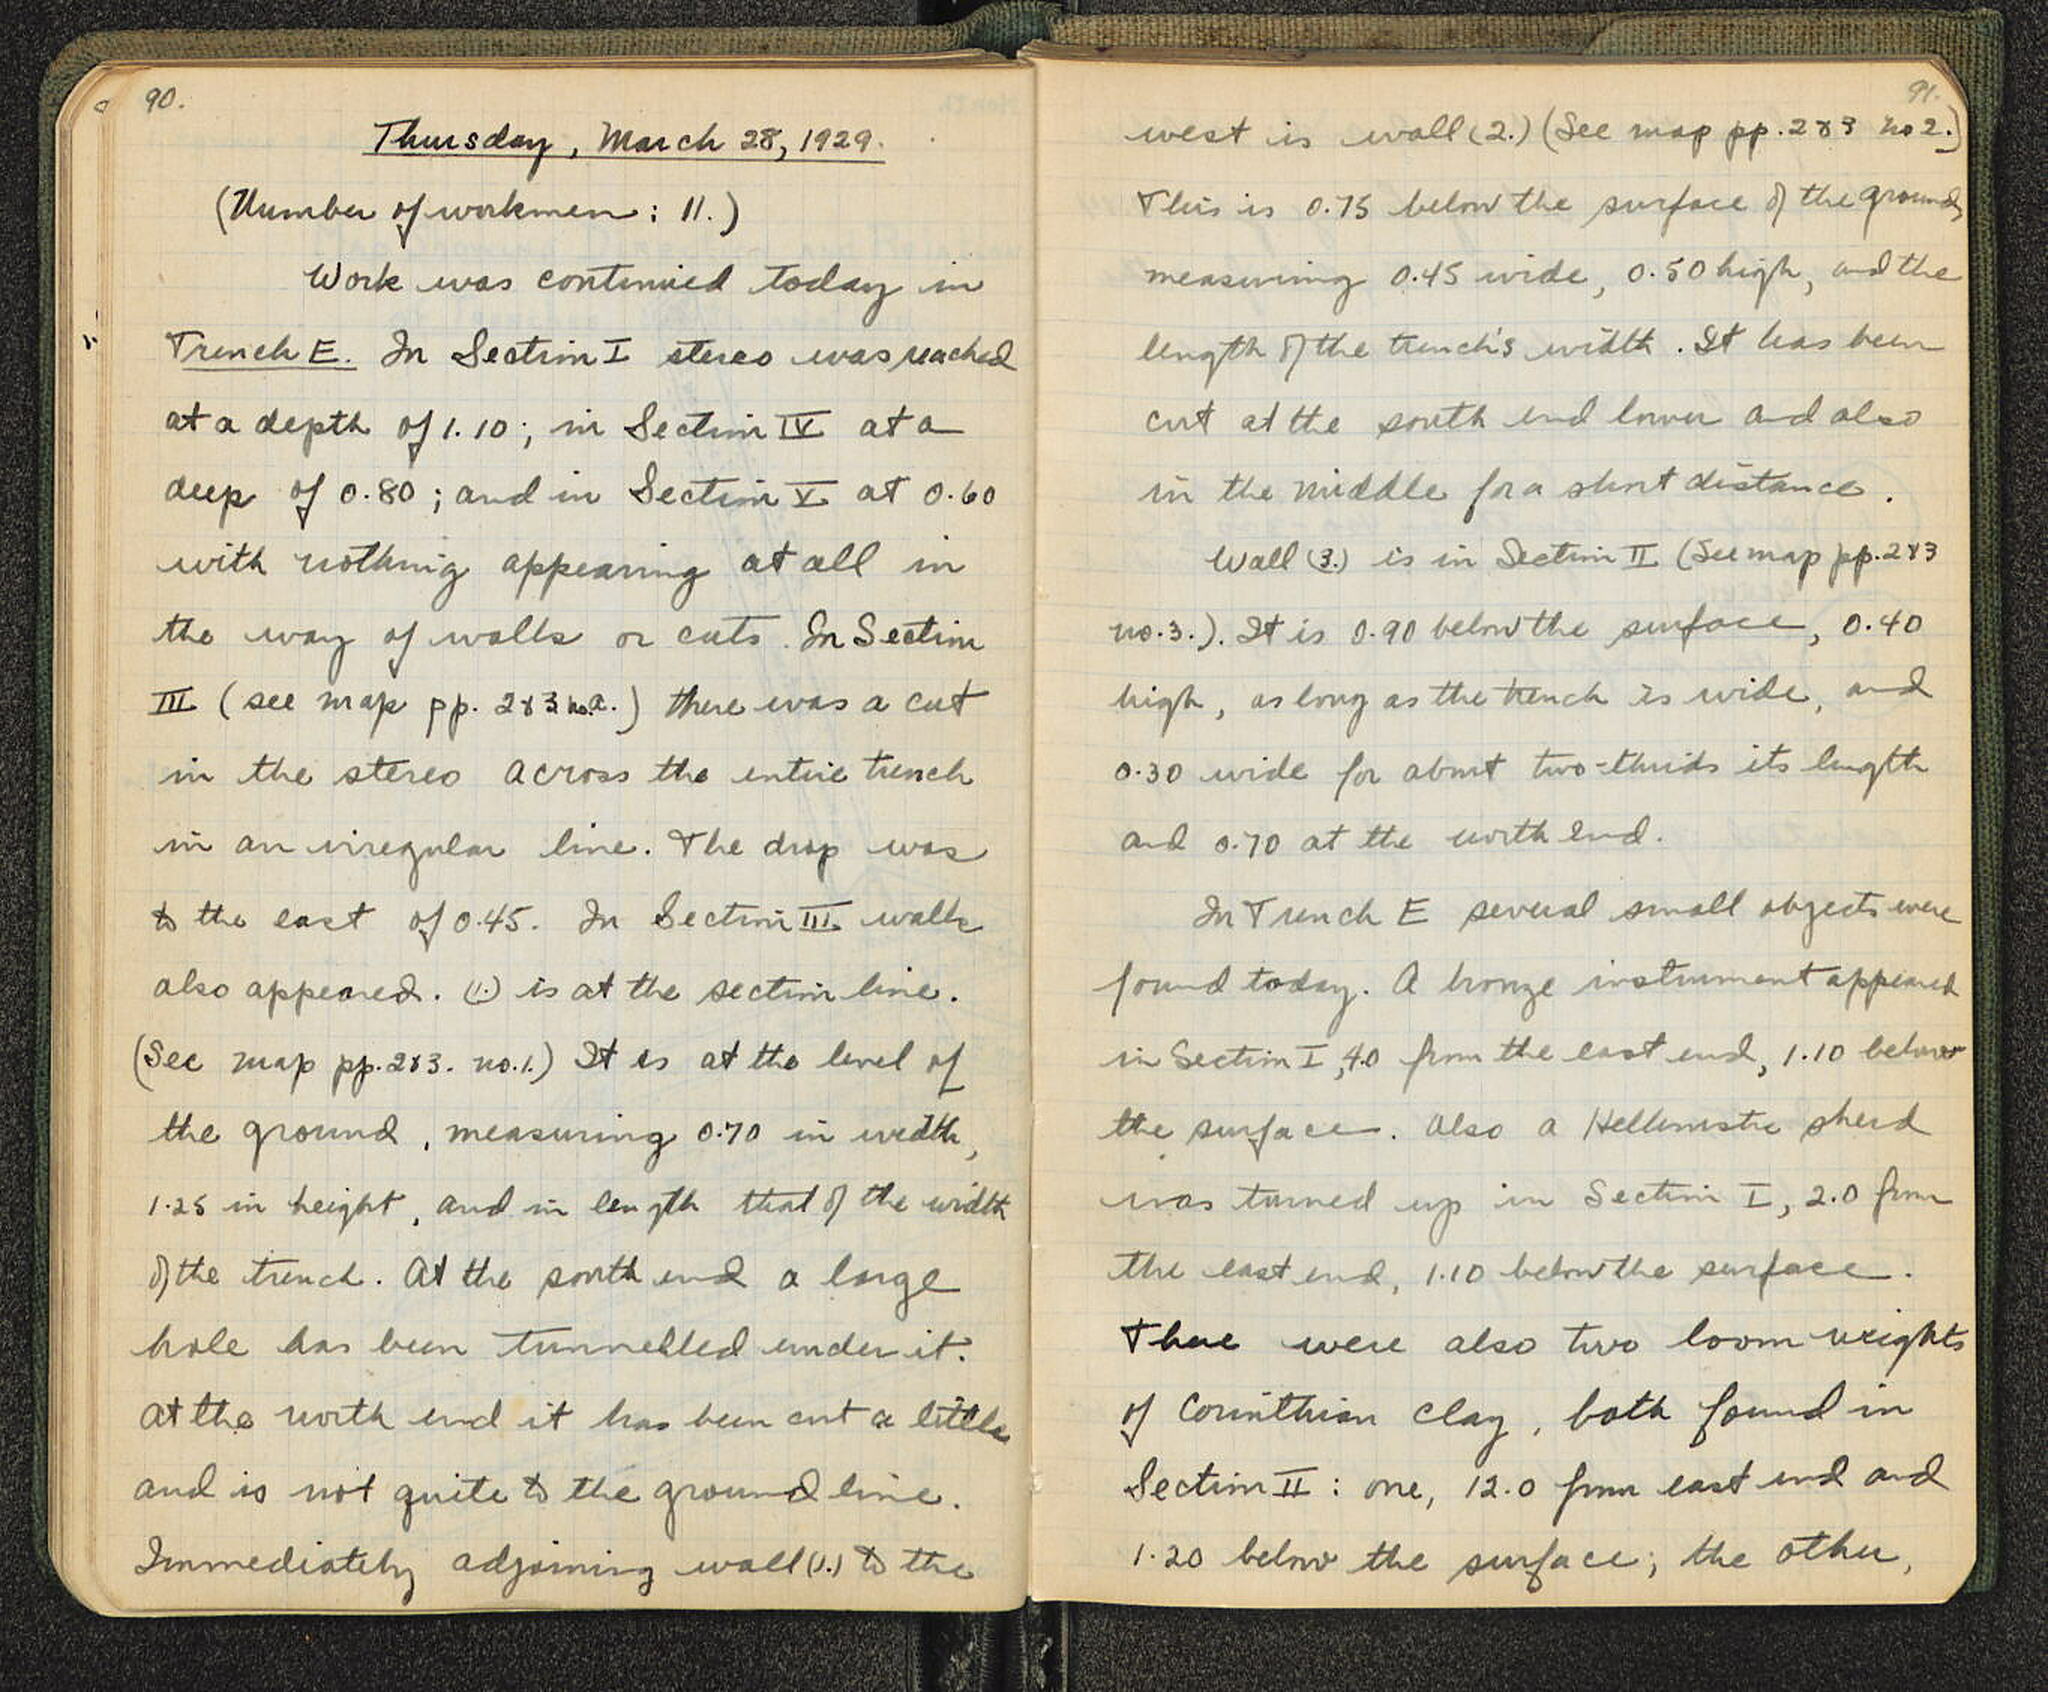 90.
Thursday, March 28, 1929.
(Number of workmen: 11.)
Work was continued today in
Trench E. In Section I stereo was reached
at a depth of 1.10; in Section IV at a
deep of 0.80; and in Section V at 0.60
with nothing appearing at all in
the way of walls or cuts. In Section
III (see map pp. 2 & 3 no. a.) there was a cut
in the stereo across the entire trench
in an irregular line. The drop was
to the east of 0.45. In Section III walls
also appeared. (1.) is at the section line.
(See map pp. 2 & 3. no. 1.) It is at the level of
the ground, measuring 0.70 in width,
1.25 in height, and in length that of the width
of the trench. At the south end a large
hole has been tunnelled under it.
At the north end it has been cut a little
and is not quite to the ground line.
Immediately adjoining wall (1.) to the
91.
west is wall (2.) (See map pp. 2 & 3 no 2.)
This is 0.75 below the surface of the ground,
measuring 0.45 wide, 0.50 high, and the
length of the trench's width. It has been
cut at the south end lower and also
in the middle for a short distance.
Wall (3.) is in Section II (See map pp. 2 & 3
no. 3.). It is 0.90 below the surface, 0.40
high, as long as the trench is wide, and
0.30 wide for about two-thirds its length
and 0.70 at the north end.
In Trench E several small objects were
found today. A bronze instrument appeared
in Section I, 4.0 from the east end, 1.10 below
the surface. Also a Hellenistic sherd
was turned up in Section I, 2.0 from
the east end, 1.10 below the surface.
There were also two loom weights
of Corinthian clay, both found in
Section II: one, 12.0 from east end and
1.20 below the surface; the other,